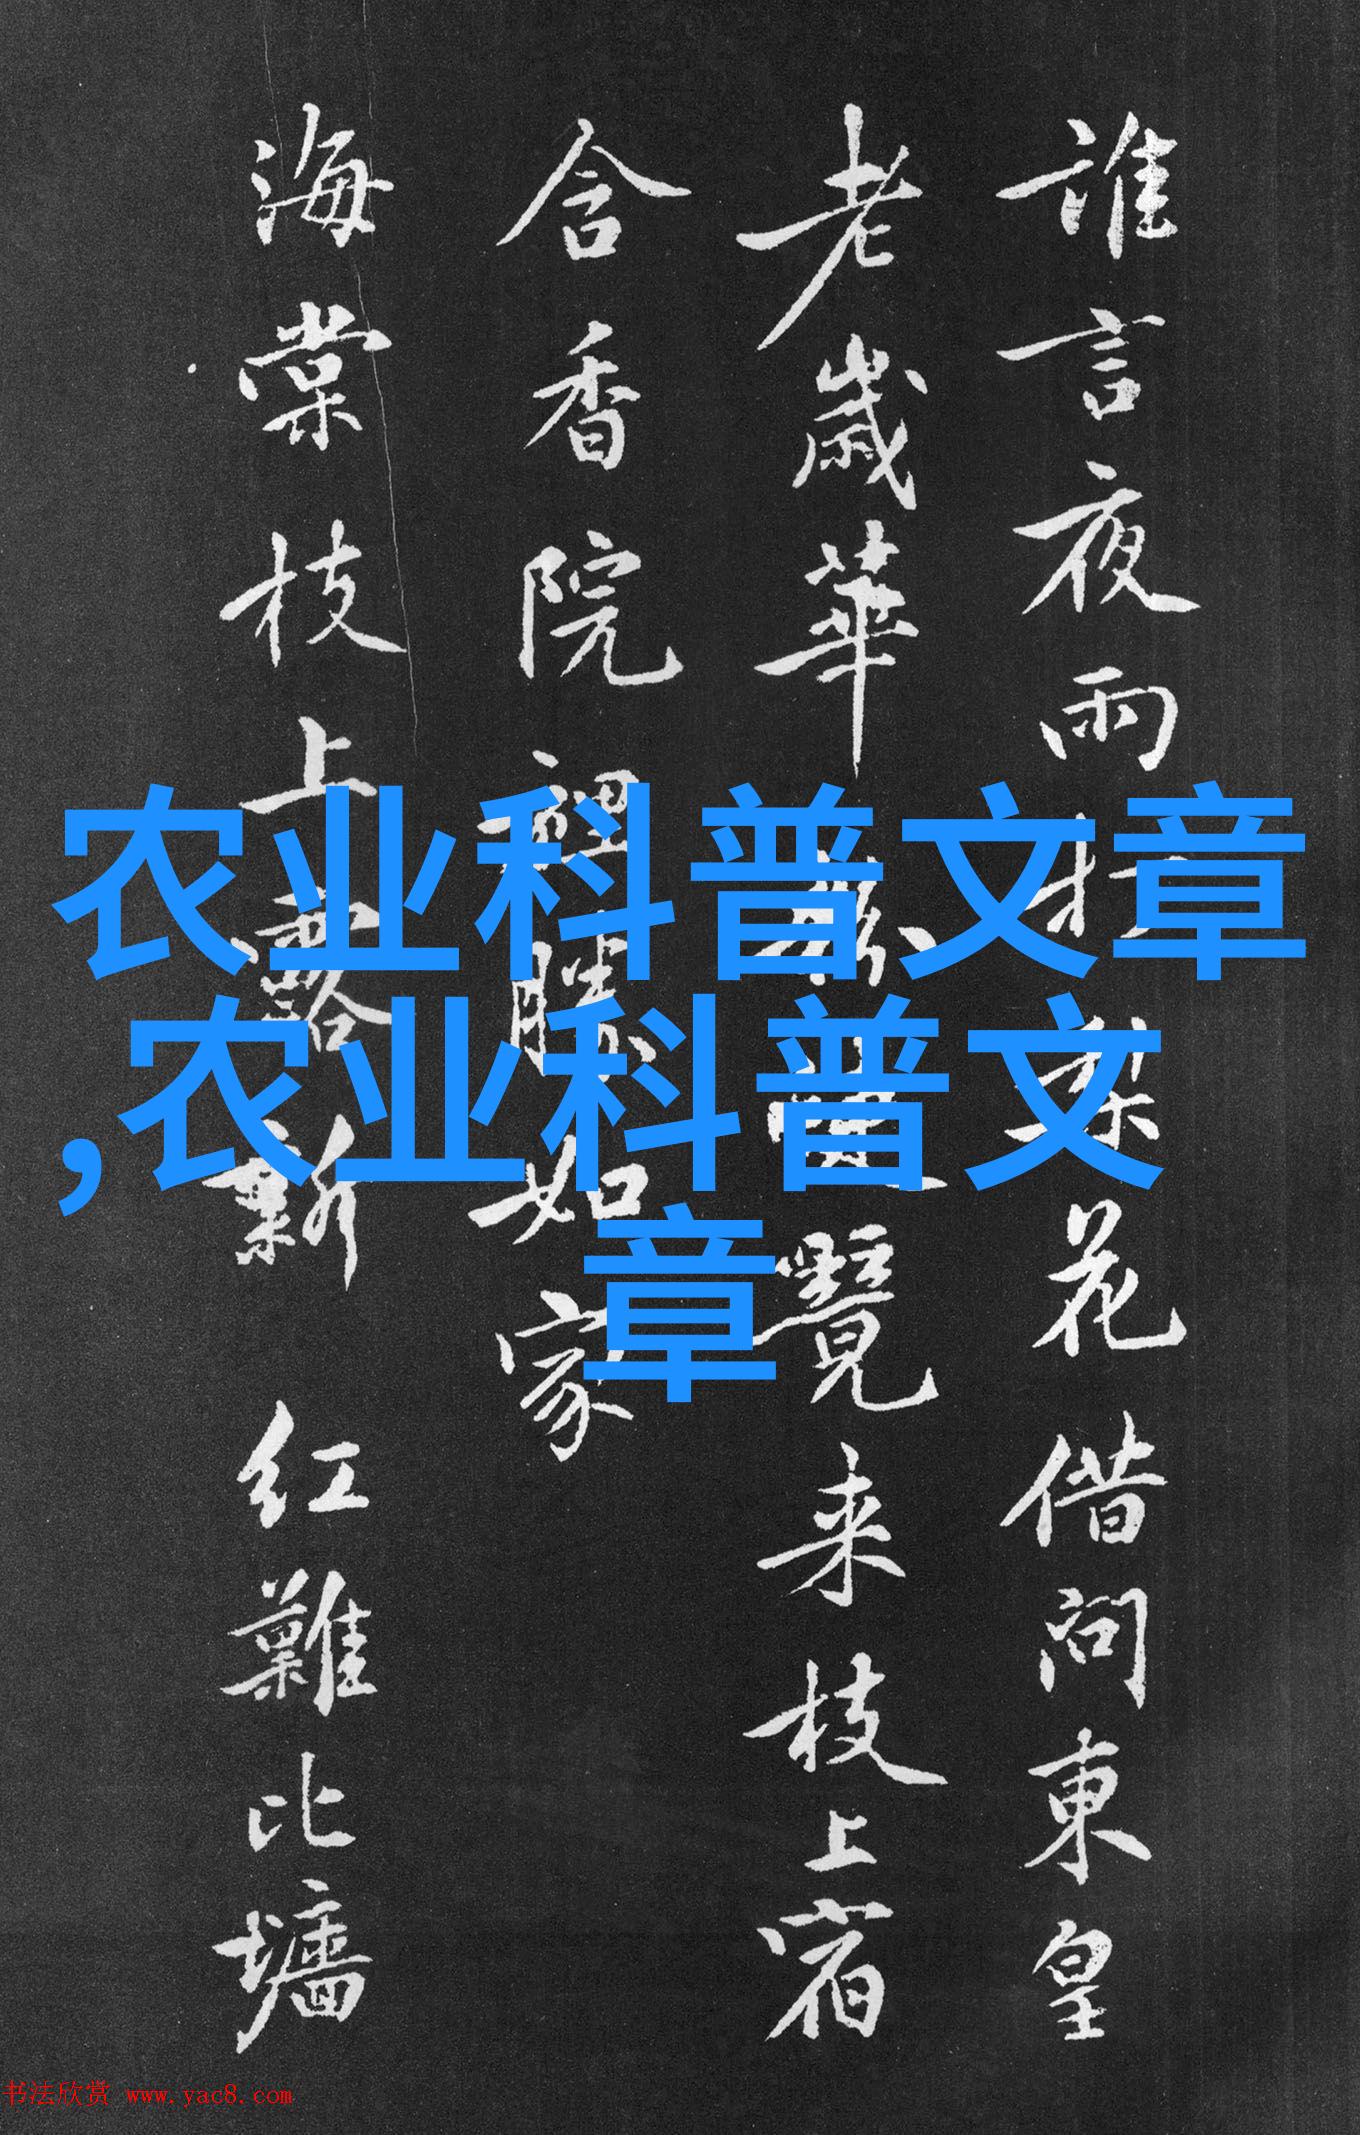 农业科普文章
,农业科普文
章
誰言夜雨打梨花借問東皇
老歲華覽来枝上宿
含香院裡勝如家
海棠枝上露新红難比墻
书法欣赏 www.yac8.com